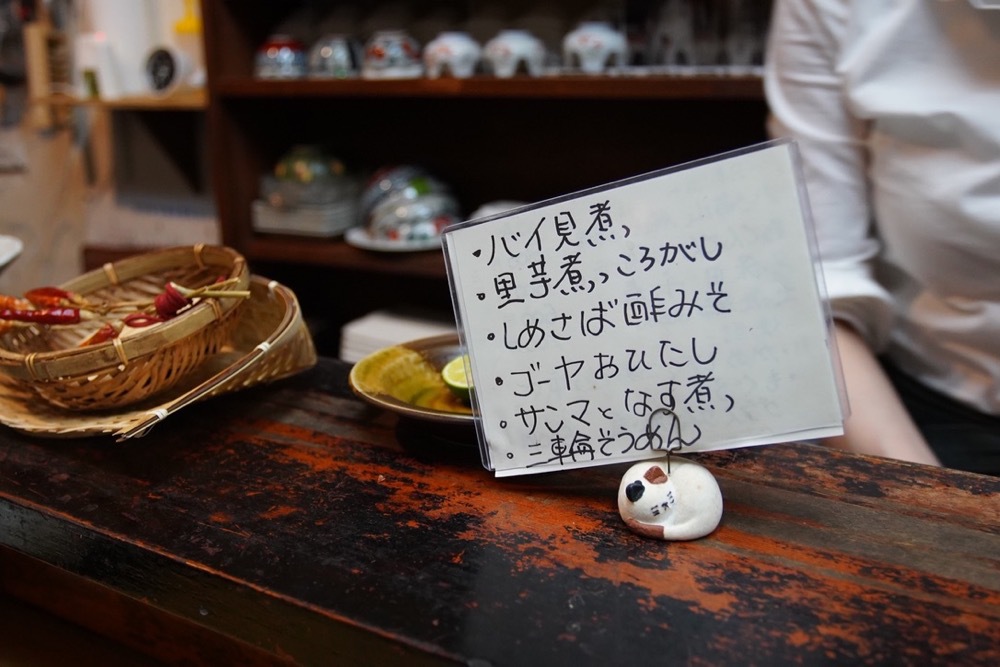 ・バイ貝煮っ
・里芋煮っころがし
・しめさば酢みそ
・ゴーヤおひたし
・サンマとなす煮っ
・三輪そうめん